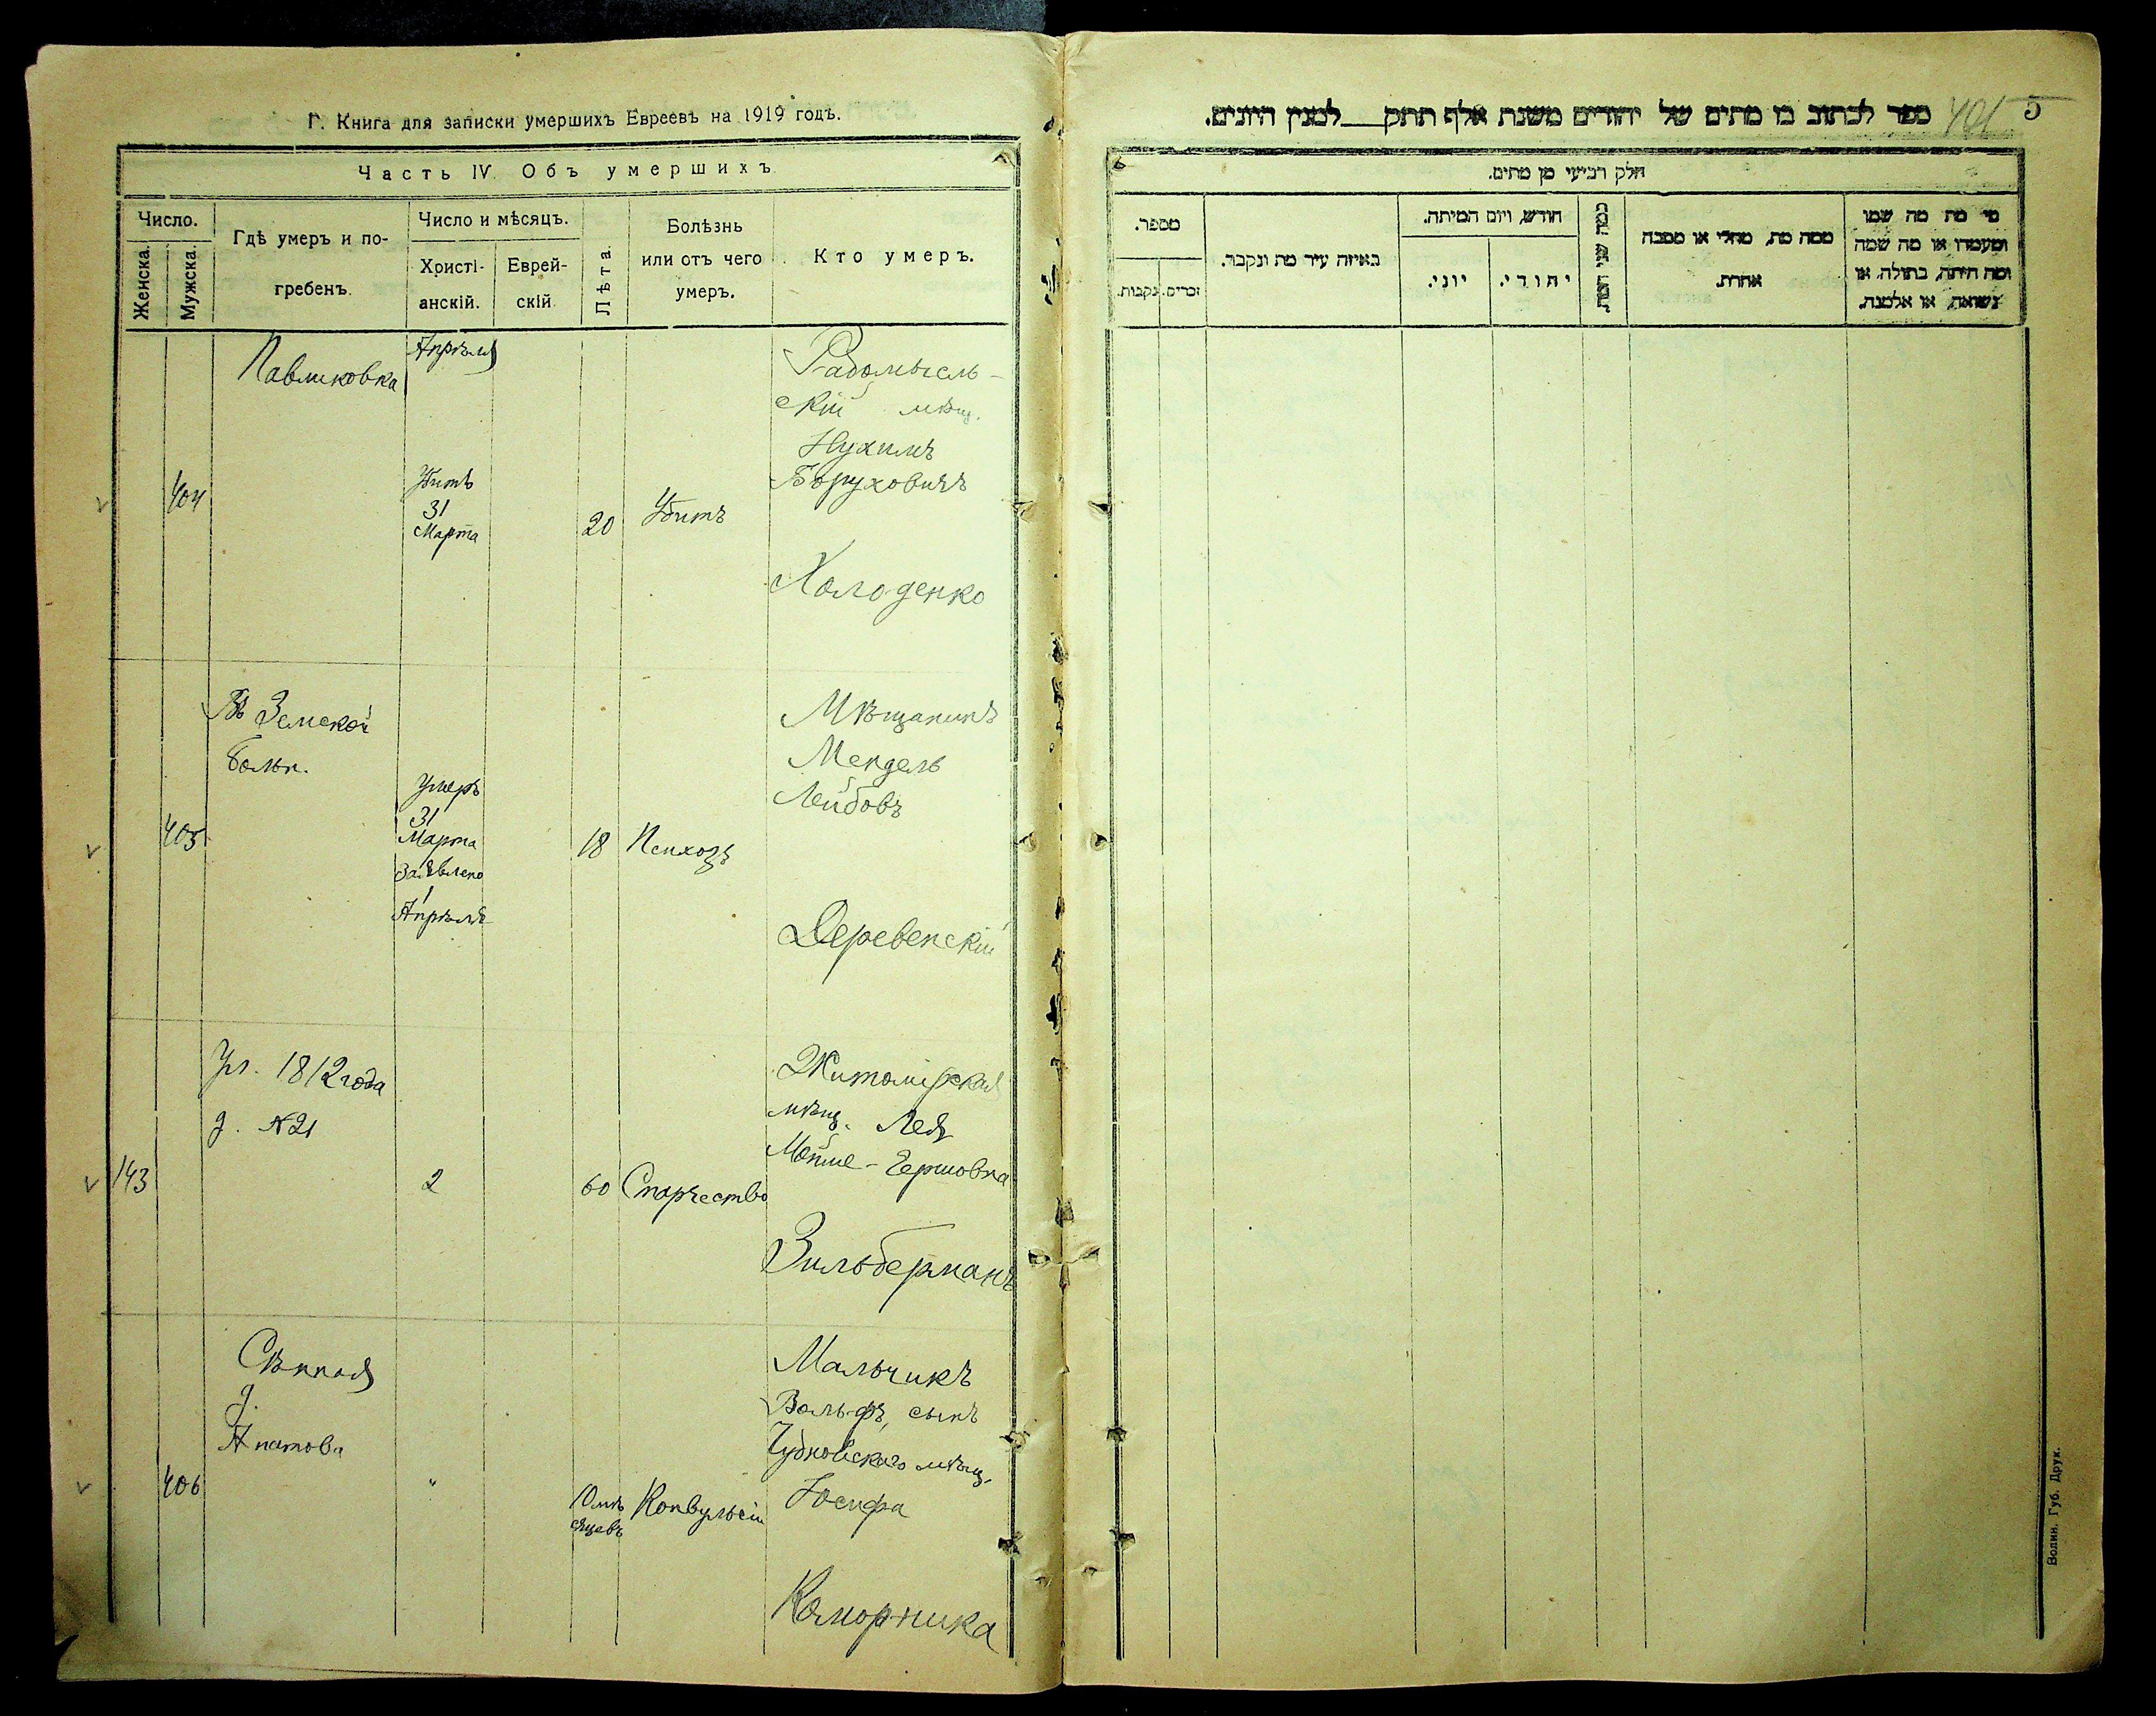 Г. Книга для записки умершихъ Евреевъ на 1919 годъ.
Часть IV Объ умершихъ
Число.
Женска.
Мужска.
Гдѣ умеръ и по-
гребенъ.
Число и мѣсяцъ.
Христі-
анскій.
Еврей-
скій
Лѣта.
Болѣзнь
или отъ чего
умеръ.
Кто умеръ.
404
Павликовка
Апрѣля
Убитъ
31
Марта
20
Убитъ
Радомысль-
скій мѣщ.
Нухимъ
Боруховичъ
Холоденко
405
Въ Земской
больн.
Умеръ
31
Марта
Заявлено
1
Апрѣля
18
Психозъ
Мѣщанинъ
Мендель
Лейбовъ
Деревенскій
143
Ул. 1812 года
д. №21
2
60
Старчество
Житомірская
мѣщ. Лея
Мойше-Гершовна
Зильберманъ
406
Сѣнная
д.
Апатова
"
10 мѣ
сяцевъ
Конвульсіи
Мальчикъ
Вольфъ, сынъ
Чудновскаго мѣщ.
Іосифа
Каморника
ספר לכתוב בו מתים של יהודים משנת אלף תתק___למנין היונים.
401
5
חלק רביעי מן מתים.
מספר.
נקבות.
זכרים.
באיזה עיר מת ונקבר.
חודש, ויום המיתה.
יוני.
יהודי.
כמה שני המת.
ממה מת, מחלי או מסבה
אחרת.
מי מת מה שמו
ומעמדו או מה שמה
ומה היתה, בתולה, או
נשואה, או אלמנה.
Волин. Губ. Друк.